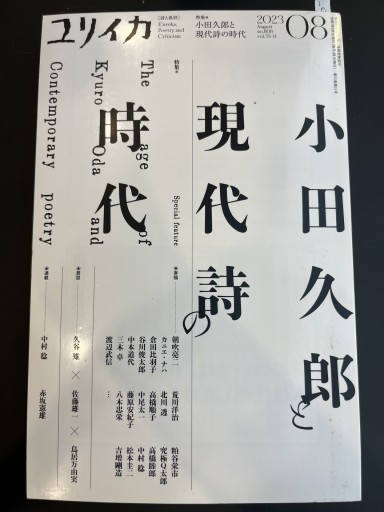 ユリイカ
[詩と批評]
Eureka
Poetry and
Criticism
特集*
小田久郎と
現代詩の時代
2023
August
vol.55-11
08
小田久郎と
現代詩の
時代
特集*
Special feature
The age of
Kyuro Oda and
Contemporary poetry
*寄稿
朝吹亮二 荒川洋治 粕谷栄市
カニエ・ナハ 北川透 究極Q太郎
倉田比羽子 高橋順子 高橋睦郎
谷川俊太郎 中尾太一 中村稔
中本道代 藤原安紀子 松本圭二
三木卓 八木忠栄 吉増剛造
渡辺武信 …
*鼎談
久谷雉 × 佐藤雄一 × 鳥居万由実
*連載
中村稔 赤坂憲雄